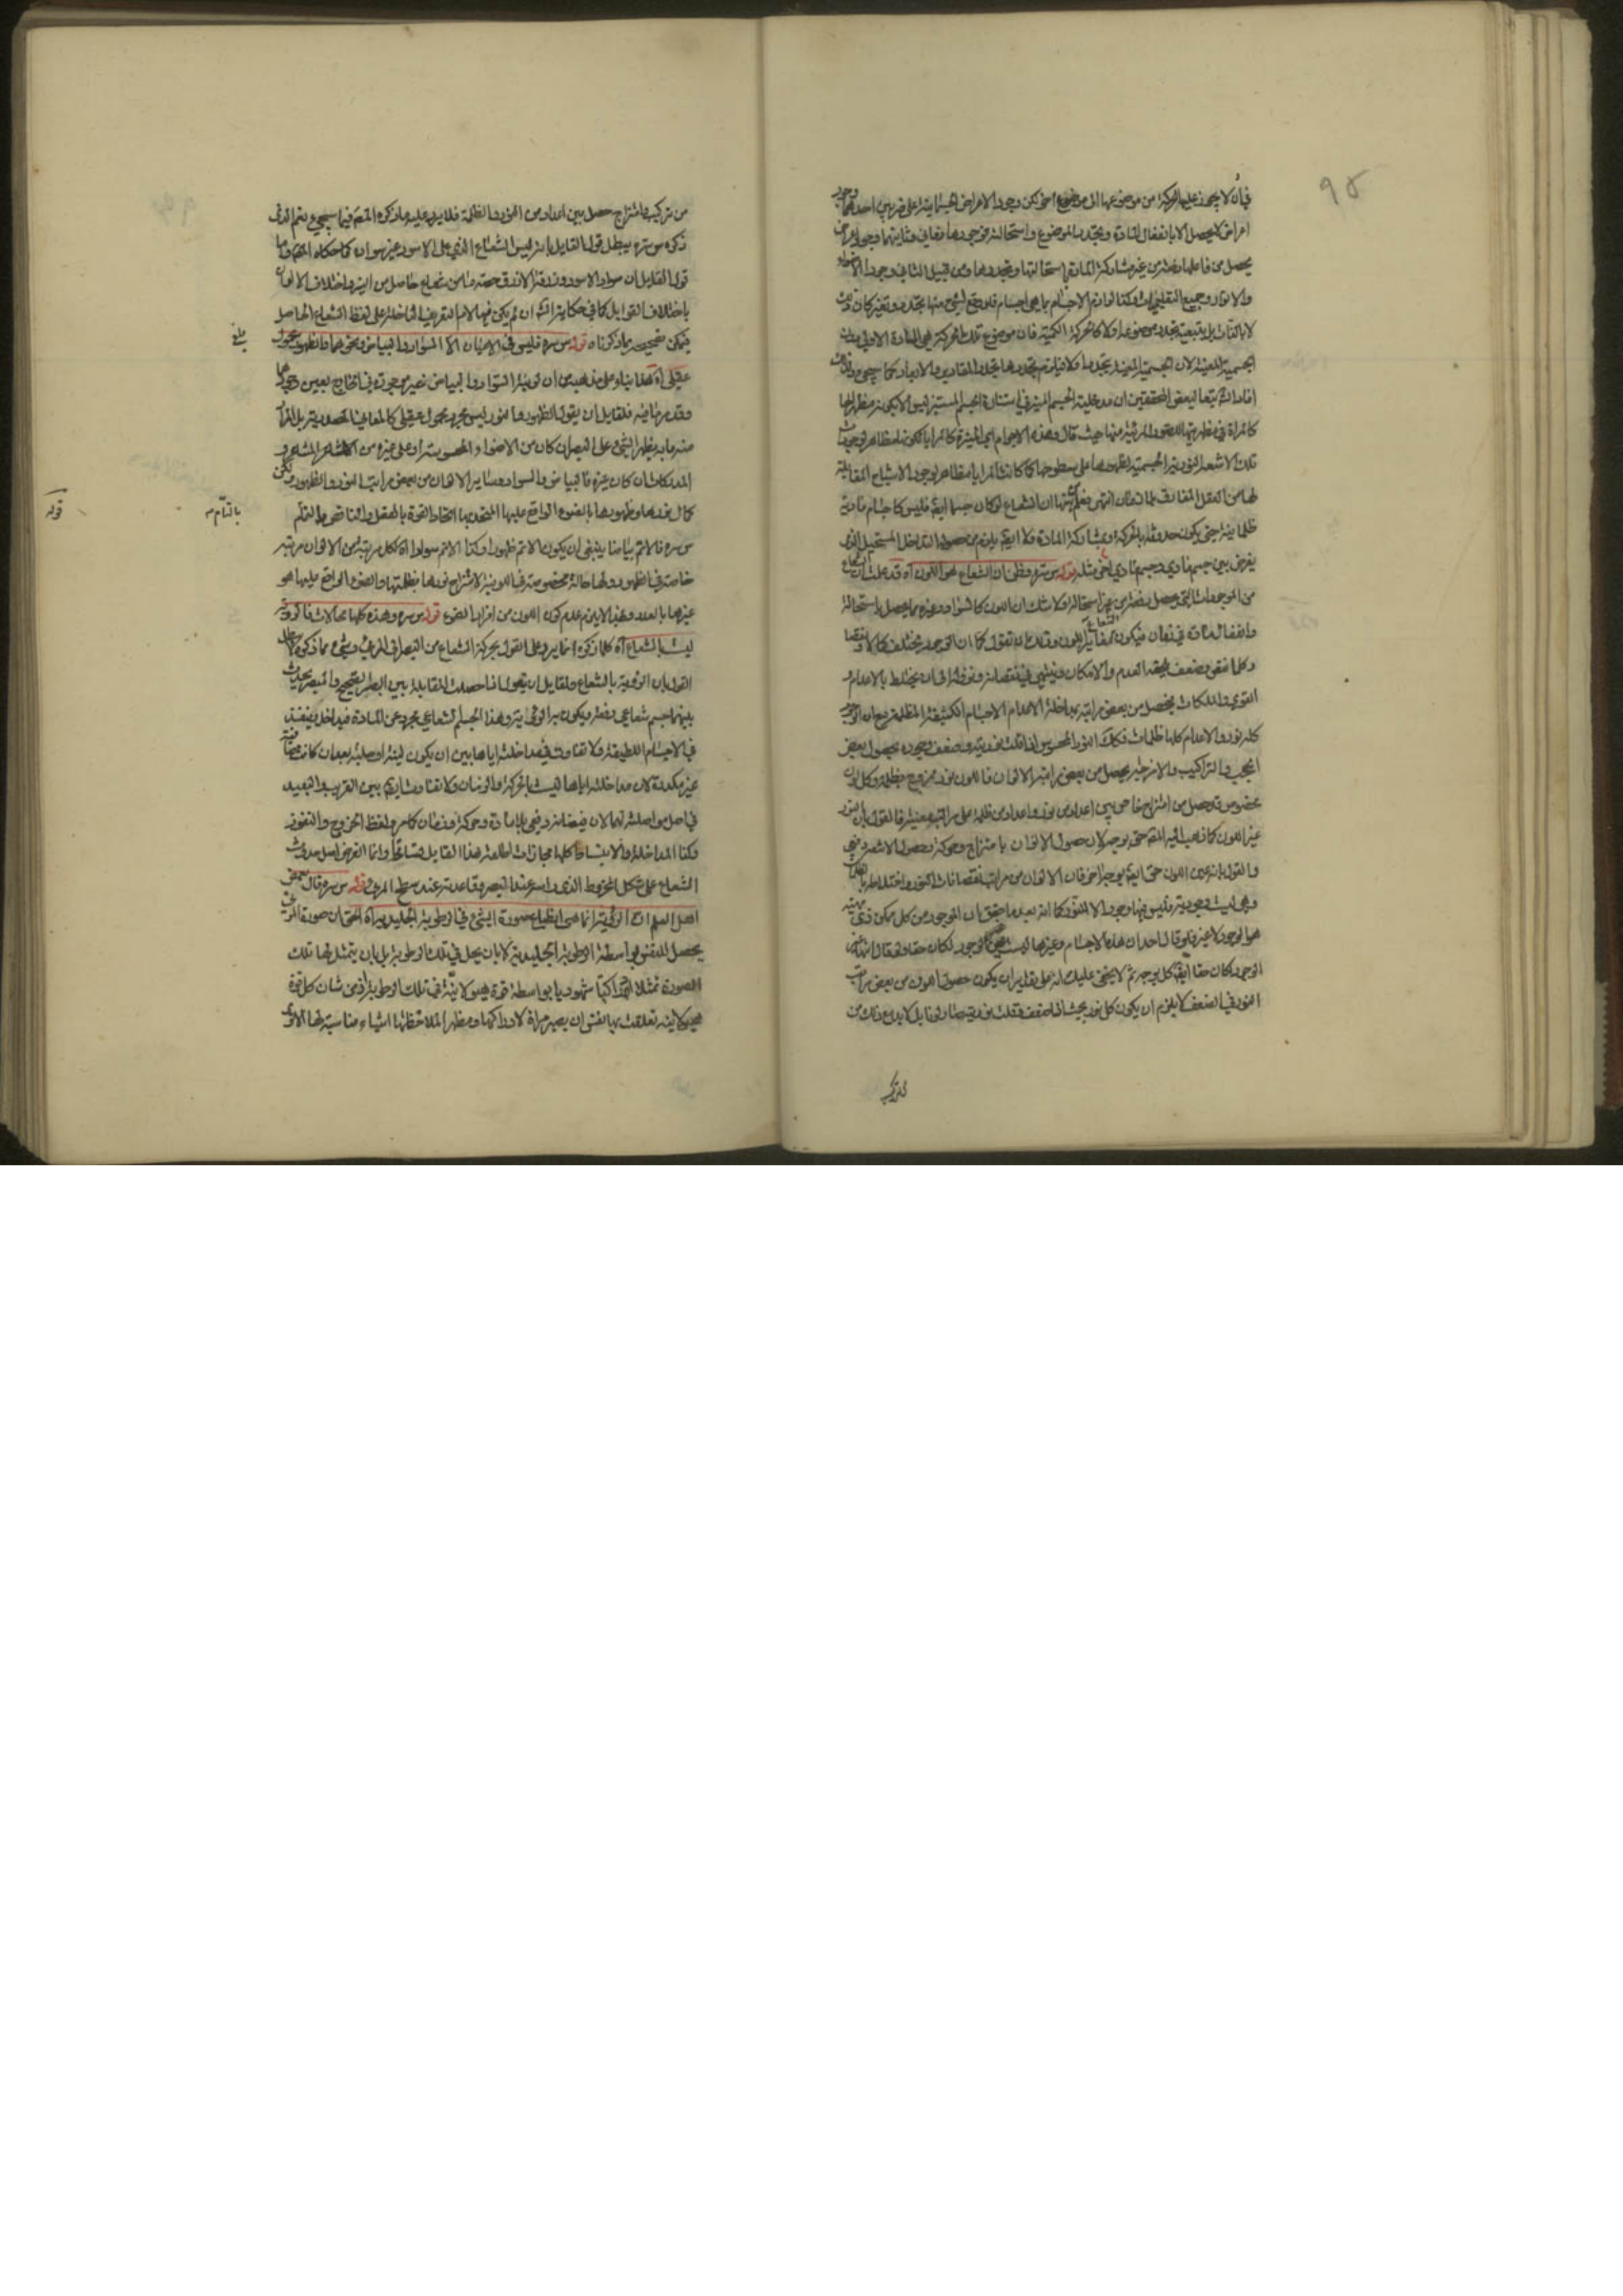 ٩٥
فان لا يجوز عليها الحركة من موضوعها الى موضوع اخر لكن وجود الاعراض الجسمانية على ضربين احدهما وجود
اعراض لا يحصل الا بانفعال المادة وتجدد الموضوع واستحالة موجودها وثانيتهما وجود اعراض
يحصل من فاعلها دفعة من غير مشاركة المادة واستحالتها وتجددها ومن قبيل الثاني وجود الاضواء
والانوار وجميع وكذا لوازم الاجسام بما هي اجسام فلو وقع لشيء منها تجدد وتغير كان ذلك
لا بالذات بل بتبعية تجدد موضوعه اولا كالحركة الكمية فان موضوع تلك الحركة هي المادة الاولى دون
الجسمية المعينة لان الجسمية المعينة يتجددها المقادير والابعاد كما سيجيء وذلك
بعض المحققين ان مدخلية الجسم المنير في استنارة الجسم المستنير ليس الا بكونه مظهرا لها
كالمرآة في مظهريتها للصور المرئية منها حيث قال وهذه الاجرام اي النيرة كالمرايا لكونها مظاهر لوجود
تلك الاشعة النورية الجسمية لظهورها على سطوحها كما كانت المرايا مظاهر لوجود الاشباح المقابلة
لها من العقل المفارق انتهى فعلم ان الشعاع لو كان جسما ايضا فليس كاجسام مادية
ظلمانية حتى يكون حدوثه بالحركة وبمشاركة المادة فلا ايضا يلزم من حصوله التداخل المستحيل الذي
يفرض بين جسم مادي وجسم مادي اخر مثله قوله س سره وظن ان الشعاع هو اللون آه قد علمت ان الشعاع
من الموجودات التي يحصل دفعة من غير استحالة ولا شك ان اللون كالسواد وغيره مما يحصل باستحالة
وانفعال مادة في زمان فيكون الشعاع مغايرا للون ولك ان تقول كما ان الوجود يختلف كمالا ونقصا
وكلما نقص وضعف لحقه العدم والامكان وينتهي في نقصانه ونزوله الى ان يختلط بالاعدام
القوى والملكات فيحصل من بعض مراتبه بمداخلة الاعدام الاجسام الكثيفة المظلمة مع ان الوجود
كله نور والاعدام كلها ظلمات فكذلك النور المحسوس اذا قلت نوريته وضعف وجوده بحصول بعض
الحجب والتراكيب والامزجة يحصل من بعض مراتبه الالوان فاللون نور ممزوج بظلمة وكل لون
مخصوص قد حصل من امتزاج خاص بين اعداد من نور واعداد من ظلمة على مراتب معينة فالقول بان النور
غير اللون كما ذهب اليه المص حق بوجه لان حصول الالوان بامتزاج وحركة وحصول الاشعة دفعي
والقول بانه عين اللون حق ايضا بوجه اخر فان الالوان من مراتب نقصانات النور واختلاطه بالظلمات
وهي ليست وجودية فليس فيها وجود الا النور كما انه بعد ما حقق ان الوجود من كل ممكن ذي مهية
هو الوجود لا غير فلو قال احد ان هذه الاجسام وغيرها ليست غير الوجود لكان حقا ولو قال انها غير
الوجود كان حقا ايضا كل بوجه ثم لا يخفى عليك انه على تقدير ان يكون حصول اللون من بعض مراتب
النور في الضعف لا يلزم ان يكون كل نور بحيث اذا ضعف وقلت نوريته صار لونا بل لا بد مع ذلك من
تركيب
من تركيب وامتزاج حصل بين اعداد من النور والظلمة فلا يرد عليه ما ذكره المص فيما سيجيء ثم الذي
ذكره س سره يبطل قول القايل بانه ليس الشعاع الذي على الاسود غير سواده كما حكاه المص واما
قول القايل ان سواد الاسود وزرقة الازرق حصة ما من شعاع حاصل من النير واختلاف الالوان
باختلاف القوابل كما في حكاية الش ان لم يكن فيها لام التعريف الداخلة على لفظ الشعاع الحاصل
يمكن تصحيحه بما ذكرناه قوله س سره فليس في الاعيان الا السواد والبياض ونحوهما والظهور محمول
عقلي آه هذا بناء على مذهبه من ان لونية السواد والبياض غير موجودة في الخارج بعين وجودهما
وقد مر ما فيه فلقايل ان يقول الظهور والنور ليس مجرد محمول عقلي كالمعاني المصدرية بل المراد
منه ما به يظهر الشيء على البصر ان كان من الاضواء المحسوسة او على غيره من المشاعر و
المدركات ان كان غيره فالبياض والسواد وساير الالوان من بعض مراتب النور والظهور ولكن
كمال نورها وظهورها بالضوء الواقع عليها المتحد بها اتحاد القوة بالفعل والناقص بالتام
س سره فالاتم بياضا ينبغي ان يكون الاتم ظهورا وكذا الاتم سوادا آه لكل مرتبة من الالوان مرتبة
خاصة في الظهور ولها حالة مخصوصة في اللونية لامتزاج نورها بظلمتها والضوء الواقع عليها هو
غيرها بالعدد وهذا لا يلزم عدم كون اللون من افراد الضوء قوله س سره وهذه كلها محالات فالرؤية
ليست بالشعاع آه كلما ذكره انما يرد على القول بحركة الشعاع من البصر الى المرئي وشيء مما ذكره لا يبطل
القول بان الرؤية بالشعاع ولقايل ان يقول اذا حصلت المقابلة بين البصر الصحيح والمبصر يحدث
بينهما جسم شعاعي دفعة ويكون به الرؤية وهذا الجسم الشعاعي مجرد عن المادة فيداخل وينفذ
في الاجسام اللطيفة ولا تفاوت في مداخلته اياها بين ان يكون لينة او صلبة بعد ان كانت شفافة
غير مكدرة لان مداخلته اياها ليست بالحركة والزمان ولا تفاوت ايضا بين القريب والبعيد
في اصل مواصلته لهما لان فيضانه دفعي بلا مادة وحركة وزمان كما مر ولفظ الخروج والنفوذ
وكذا المداخلة والانبساط كلها مجازات اطلقه هذا القايل تسامحا وانما الغرض اصل حدوث
الشعاع على شكل المخروط الذي راسه عند البصر وقاعدته عند سطح المرئي قوله س سره قال بعض
اهل العلم ان الرؤية انما هي انطباع صورة الشيء في الرطوبة الجليدية آه الحق ان صورة المرئي
يحصل للنفس بواسطة الرطوبة الجليدية لا بان يحل في تلك الرطوبة بل بان يتمثل لها تلك
الصورة تمثلا ادراكيا شهوديا بواسطة قوة هيولانية في تلك الرطوبة اذ من شان كل قوة
هيولانية تعلقت بها نفس ان يصير مرآة لادراكها ومظهرا لملاحظتها اشياء مناسبة لها
بالتام
قوله